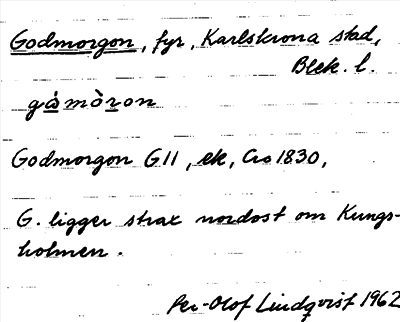 Godmorgon, fyr, Karlskrona stad,
Blek. l.
gåmòron
Godmorgon G11, ek, Ca 1830,
G. ligger strax nordost om Kungs-
holmen.
Per-Olof Lindqvist 1962